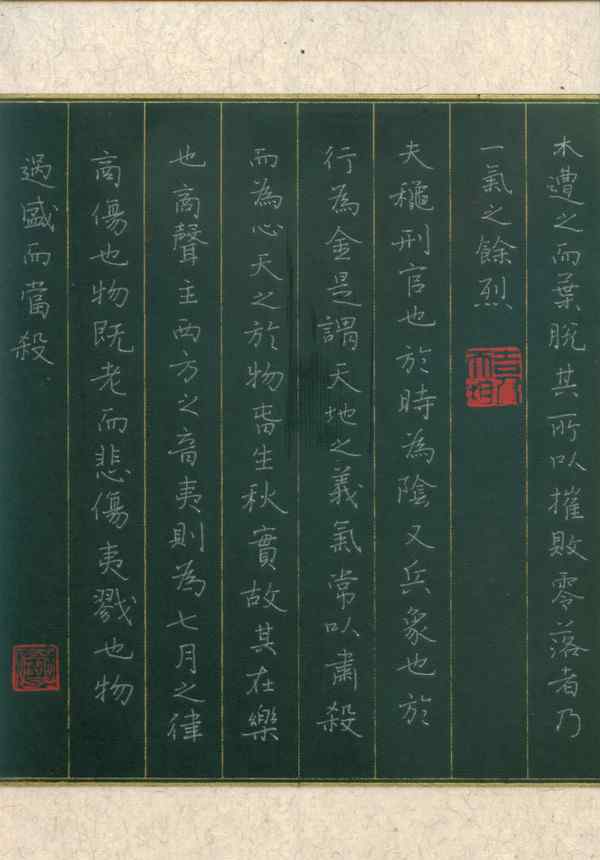 木遭之而葉脫其所以摧敗零落者乃
一氣之餘烈
夫穐刑官也於時為陰又兵象也於
行為金是謂天地之義氣常以肅殺
而為心天之於物春生秋實故其在樂
也商聲主西方之音夷則為七月之律
商傷也物既老而悲傷夷戮也物
過盛而當殺